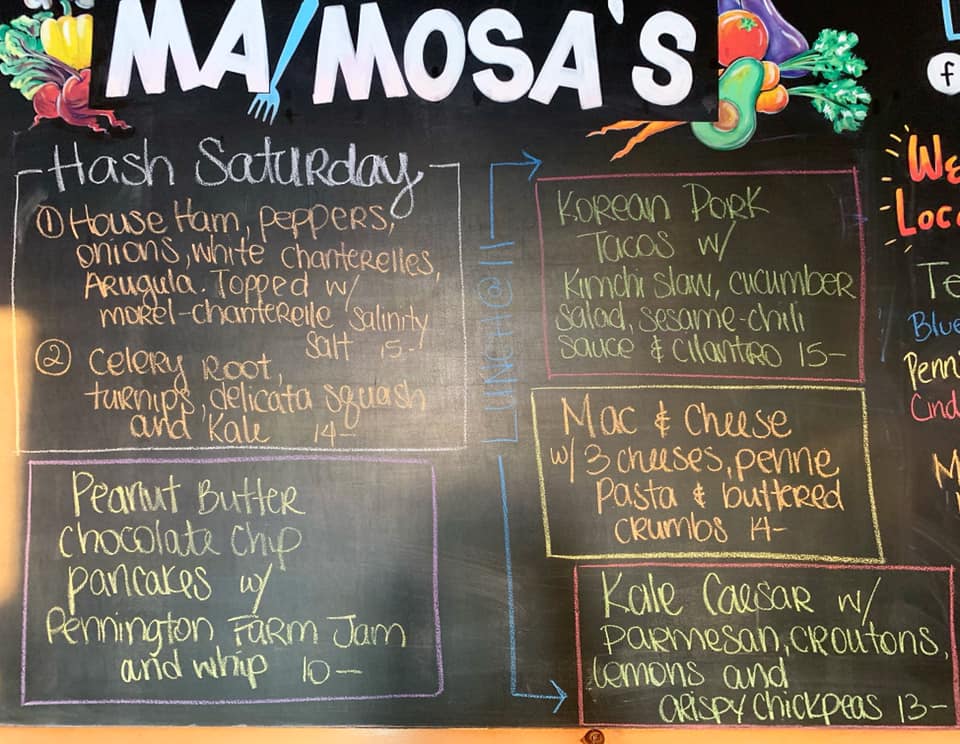 MA/MOSA'S
Hash Saturday
① House Ham, peppers,
onions, white chanterelles,
Arugula. Topped w/
morel-chanterelle salinity
salt 15-
② Celery Root,
turnips, delicata squash
and Kale 14-
Peanut Butter
chocolate chip
pancakes w/
Pennington Farm Jam
and whip 10-
LUNCH@11
Korean Pork
Tacos w/
Kimchi slaw, cucumber
salad, sesame-chili
sauce & cilantro 15-
Mac & Cheese
w/ 3 cheeses, penne
pasta & buttered
crumbs 14-
Kale Caesar w/
parmesan, croutons,
lemons and
crispy chickpeas 13-
f
We
Loc
Te
Blue
Penni
Cind
M